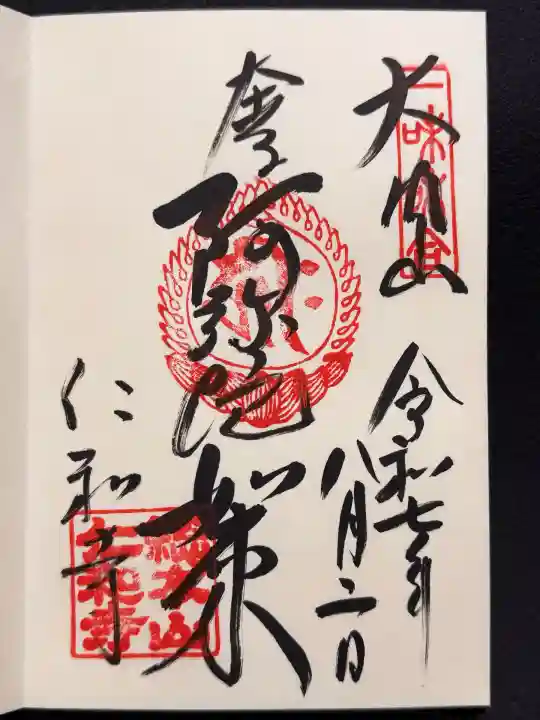 大内山
令和七年
八月二日
奉
阿弥陀如来
仁和寺
総本山
仁和寺